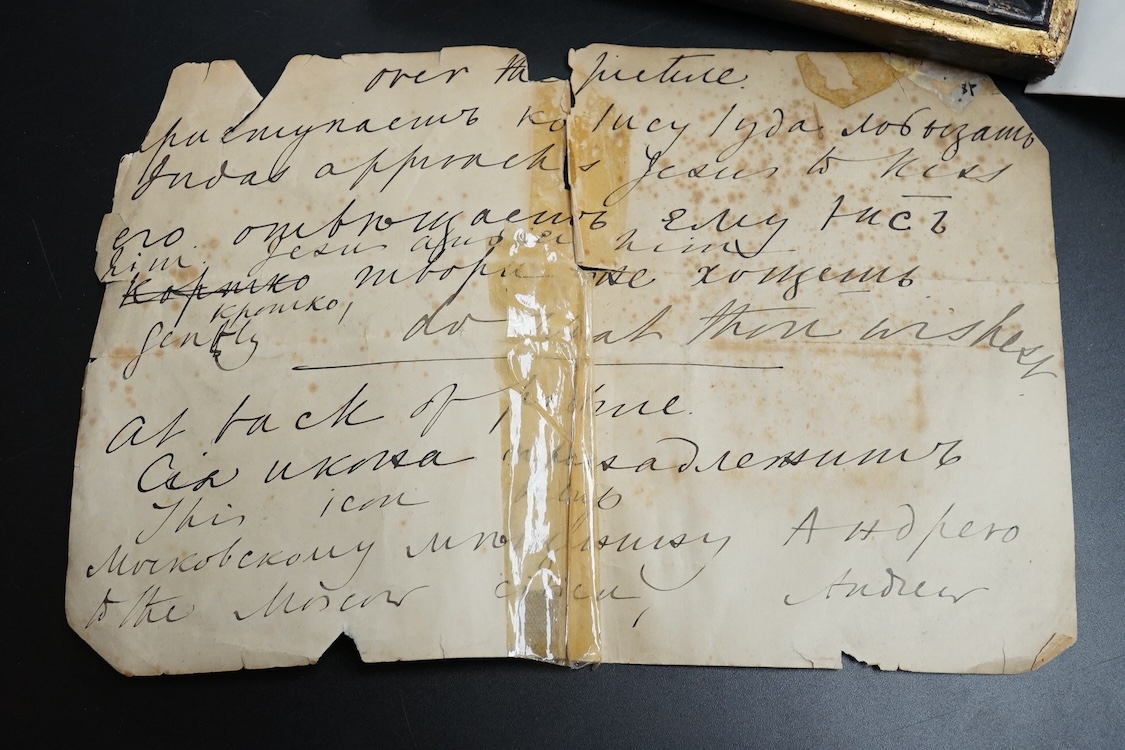 over the picture.
риступаетъ ко Іису Іуда лобызать
Judas approachs Jesus to kiss
его. отвѣщаетъ ему Іисъ
him. Jesus answer him
Кортко твори же хощешь
кротко,
gently do what thou wishest
at back of picture.
Сія икона надлежитъ
This icon
Московскому мѣщанину Андрею
to the Moscow citizen, Andrew